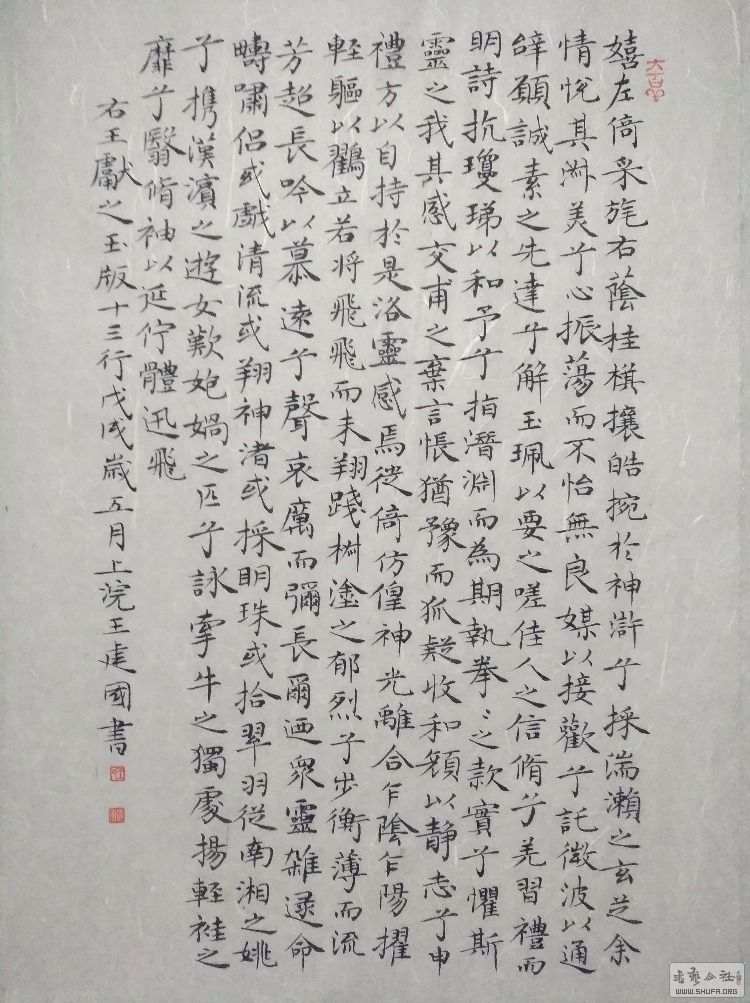 嬉左倚采旄右蔭桂棋攘皓捥於神滸兮採湍瀨之玄芝余
情悅其淋美兮心振蕩而不怡無良媒以接歡兮託微波以通
辭願誠素之先達兮解玉珮以要之嗟佳人之信脩兮羌習禮而
明詩抗瓊珶以和予兮指潛淵而為期執拳〻之款實兮懼斯
靈之我其感交甫之棄言悵猶豫而狐疑收和顏以静志兮申
禮方以自持於是洛靈感焉徙倚仿偟神光離合乍陰乍陽擢
輕軀以鸖立若将飛飛而未翔踐椒塗之郁烈兮步衡薄而流
芳超長吟以慕遠兮聲哀厲而彌長爾迺眾靈雜遝命
疇嘯侶或戲清流或翔神渚或採明珠或拾翠羽從南湘之姚
兮攜漢濱之遊女歎炮媧之匹兮詠牽牛之獨處揚輕袿之
靡兮翳脩袖以延佇體迅飛
右王獻之玉版十三行戊戌歲五月上浣王建國書
书艺公社
WWW.SHUFA.ORG